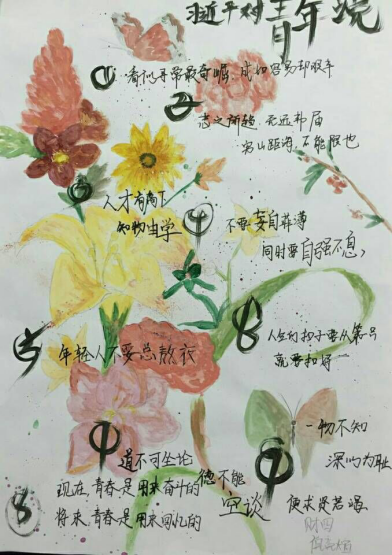 习近平对青年说
① 看似寻常最奇崛, 成如容易却艰辛
② 志之所趋 无远弗届
穷山距海, 不能限也
③ 人才有高下
知物由学
④ 不要妄自菲薄
同时要自强不息,
⑤ 年轻人不要总熬夜
⑥ 人生的扣子要从第一
就要扣好
⑦ 道不可坐论
德不能
空谈
一物不知
深以为耻
便求贤若渴
8 现在, 青春是用来奋斗的
将来, 青春是用来回忆的
财四